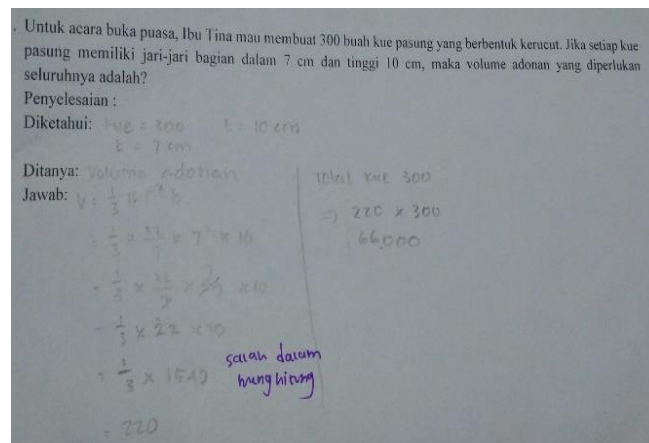 . Untuk acara buka puasa, Ibu Tina mau membuat 300 buah kue pasung yang berbentuk kerucut. Jika setiap kue
pasung memiliki jari-jari bagian dalam 7 cm dan tinggi 10 cm, maka volume adonan yang diperlukan
seluruhnya adalah?
Penyelesaian :
Diketahui: kue = 300 t = 10 cm
= 7 cm
Ditanya: Volume adonan
Jawab: V = 1/3 π r² t
= 1/3 × 22/7 × 7² × 10
= 1/3 × 22/7 × × 10
= 1/3 × 22 × 10
= 1/3 × 1540
= 220
Total kue 300
=> 220 × 300
66,000
salah dalam
menghitung